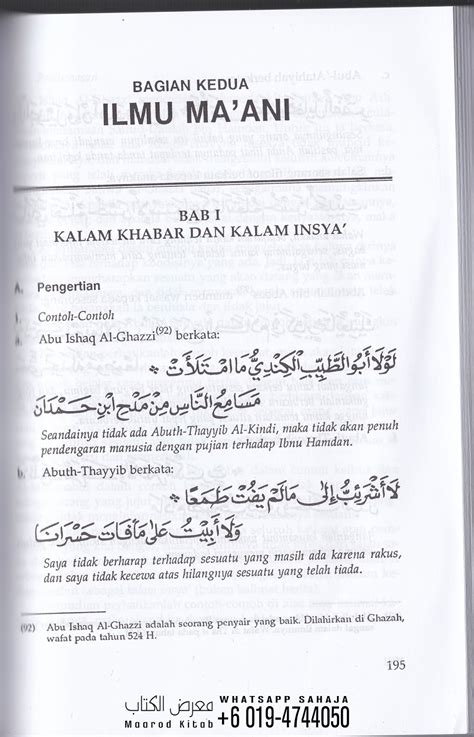 BAGIAN KEDUA
ILMU MA'ANI
BAB I
KALAM KHABAR DAN KALAM INSYA'
A. Pengertian
1. Contoh-Contoh
a. Abu Ishaq Al-Ghazzi(92) berkata:
لَوْلَا أَبُو الطَّيِّبِ الْكِنْدِيُّ مَا امْتَلَأَتْ *
مَسَامِعُ النَّاسِ مِنْ مَدْحِ ابْنِ حَمْدَانَ
Seandainya tidak ada Abuth-Thayyib Al-Kindi, maka tidak akan penuh
pendengaran manusia dengan pujian terhadap Ibnu Hamdan.
b. Abuth-Thayyib berkata:
لَا أَشْرَئِبُّ إِلَى مَا لَمْ يَفُتْ طَمَعًا *
وَلَا أَبِيْتُ عَلَى مَا فَاتَ حَسْرَانَا
Saya tidak berharap terhadap sesuatu yang masih ada karena rakus,
dan saya tidak kecewa atas hilangnya sesuatu yang telah tiada.
(92) Abu Ishaq Al-Ghazzi adalah seorang penyair yang baik. Dilahirkan di Ghazah,
wafat pada tahun 524 H.
195
معرض الكتاب
Maarod Kitab
WHATSAPP SAHAJA
+6 019-4744050